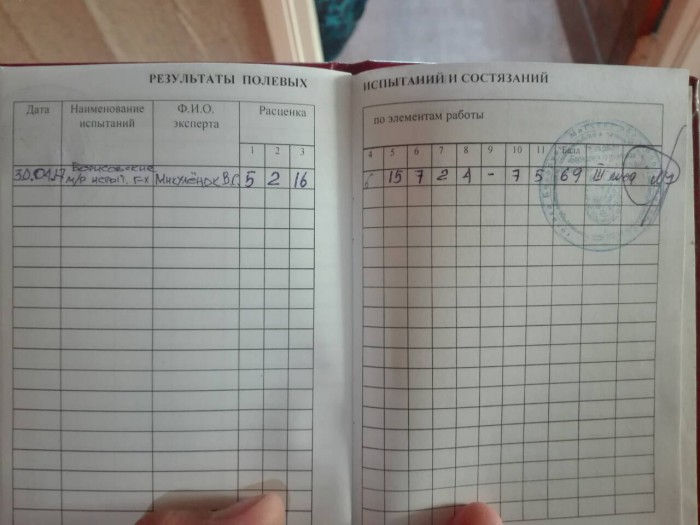 РЕЗУЛЬТАТЫ ПОЛЕВЫХ
Дата
Наименование
испытаний
Ф.И.О.
эксперта
Расценка
1 2 3
30.04.17
Борисовские
м/р испыт. г-х
Микулёнок В.С. 5 2 16
ИСПЫТАНИЙ И СОСТЯЗАНИЙ
по элементам работы
4 5 6 7 8 9 10 11 Балл
6 15 7 2 4 - 7 5 69 III